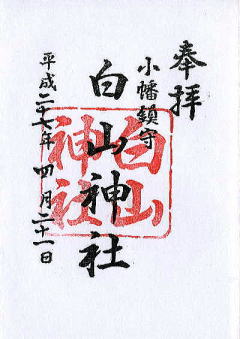 奉拝
小幡鎮守
白山神社
白山神社
平成二十七年四月二十一日